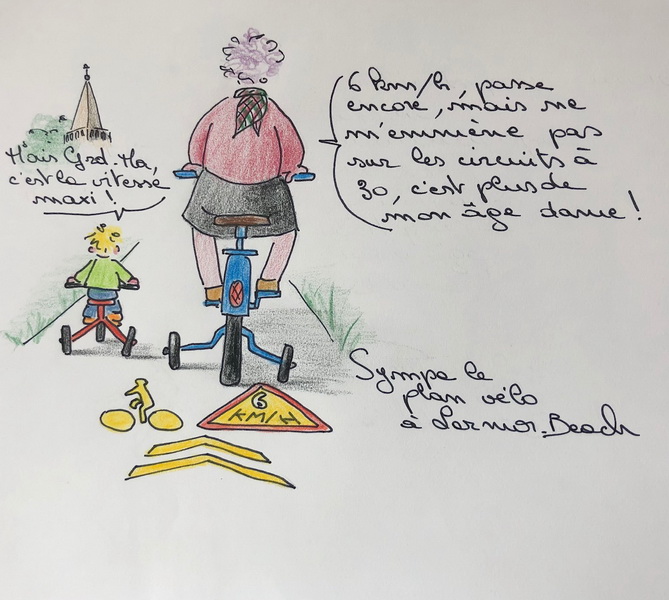 6 km/h, passe
encore, mais ne
m'emmène pas
sur les circuits à
30, c'est plus de
mon âge dame !
Mais Grd. Ma,
c'est la vitesse
maxi !
Sympa le
plan vélo
à Larmor-Beach
6
KM/H